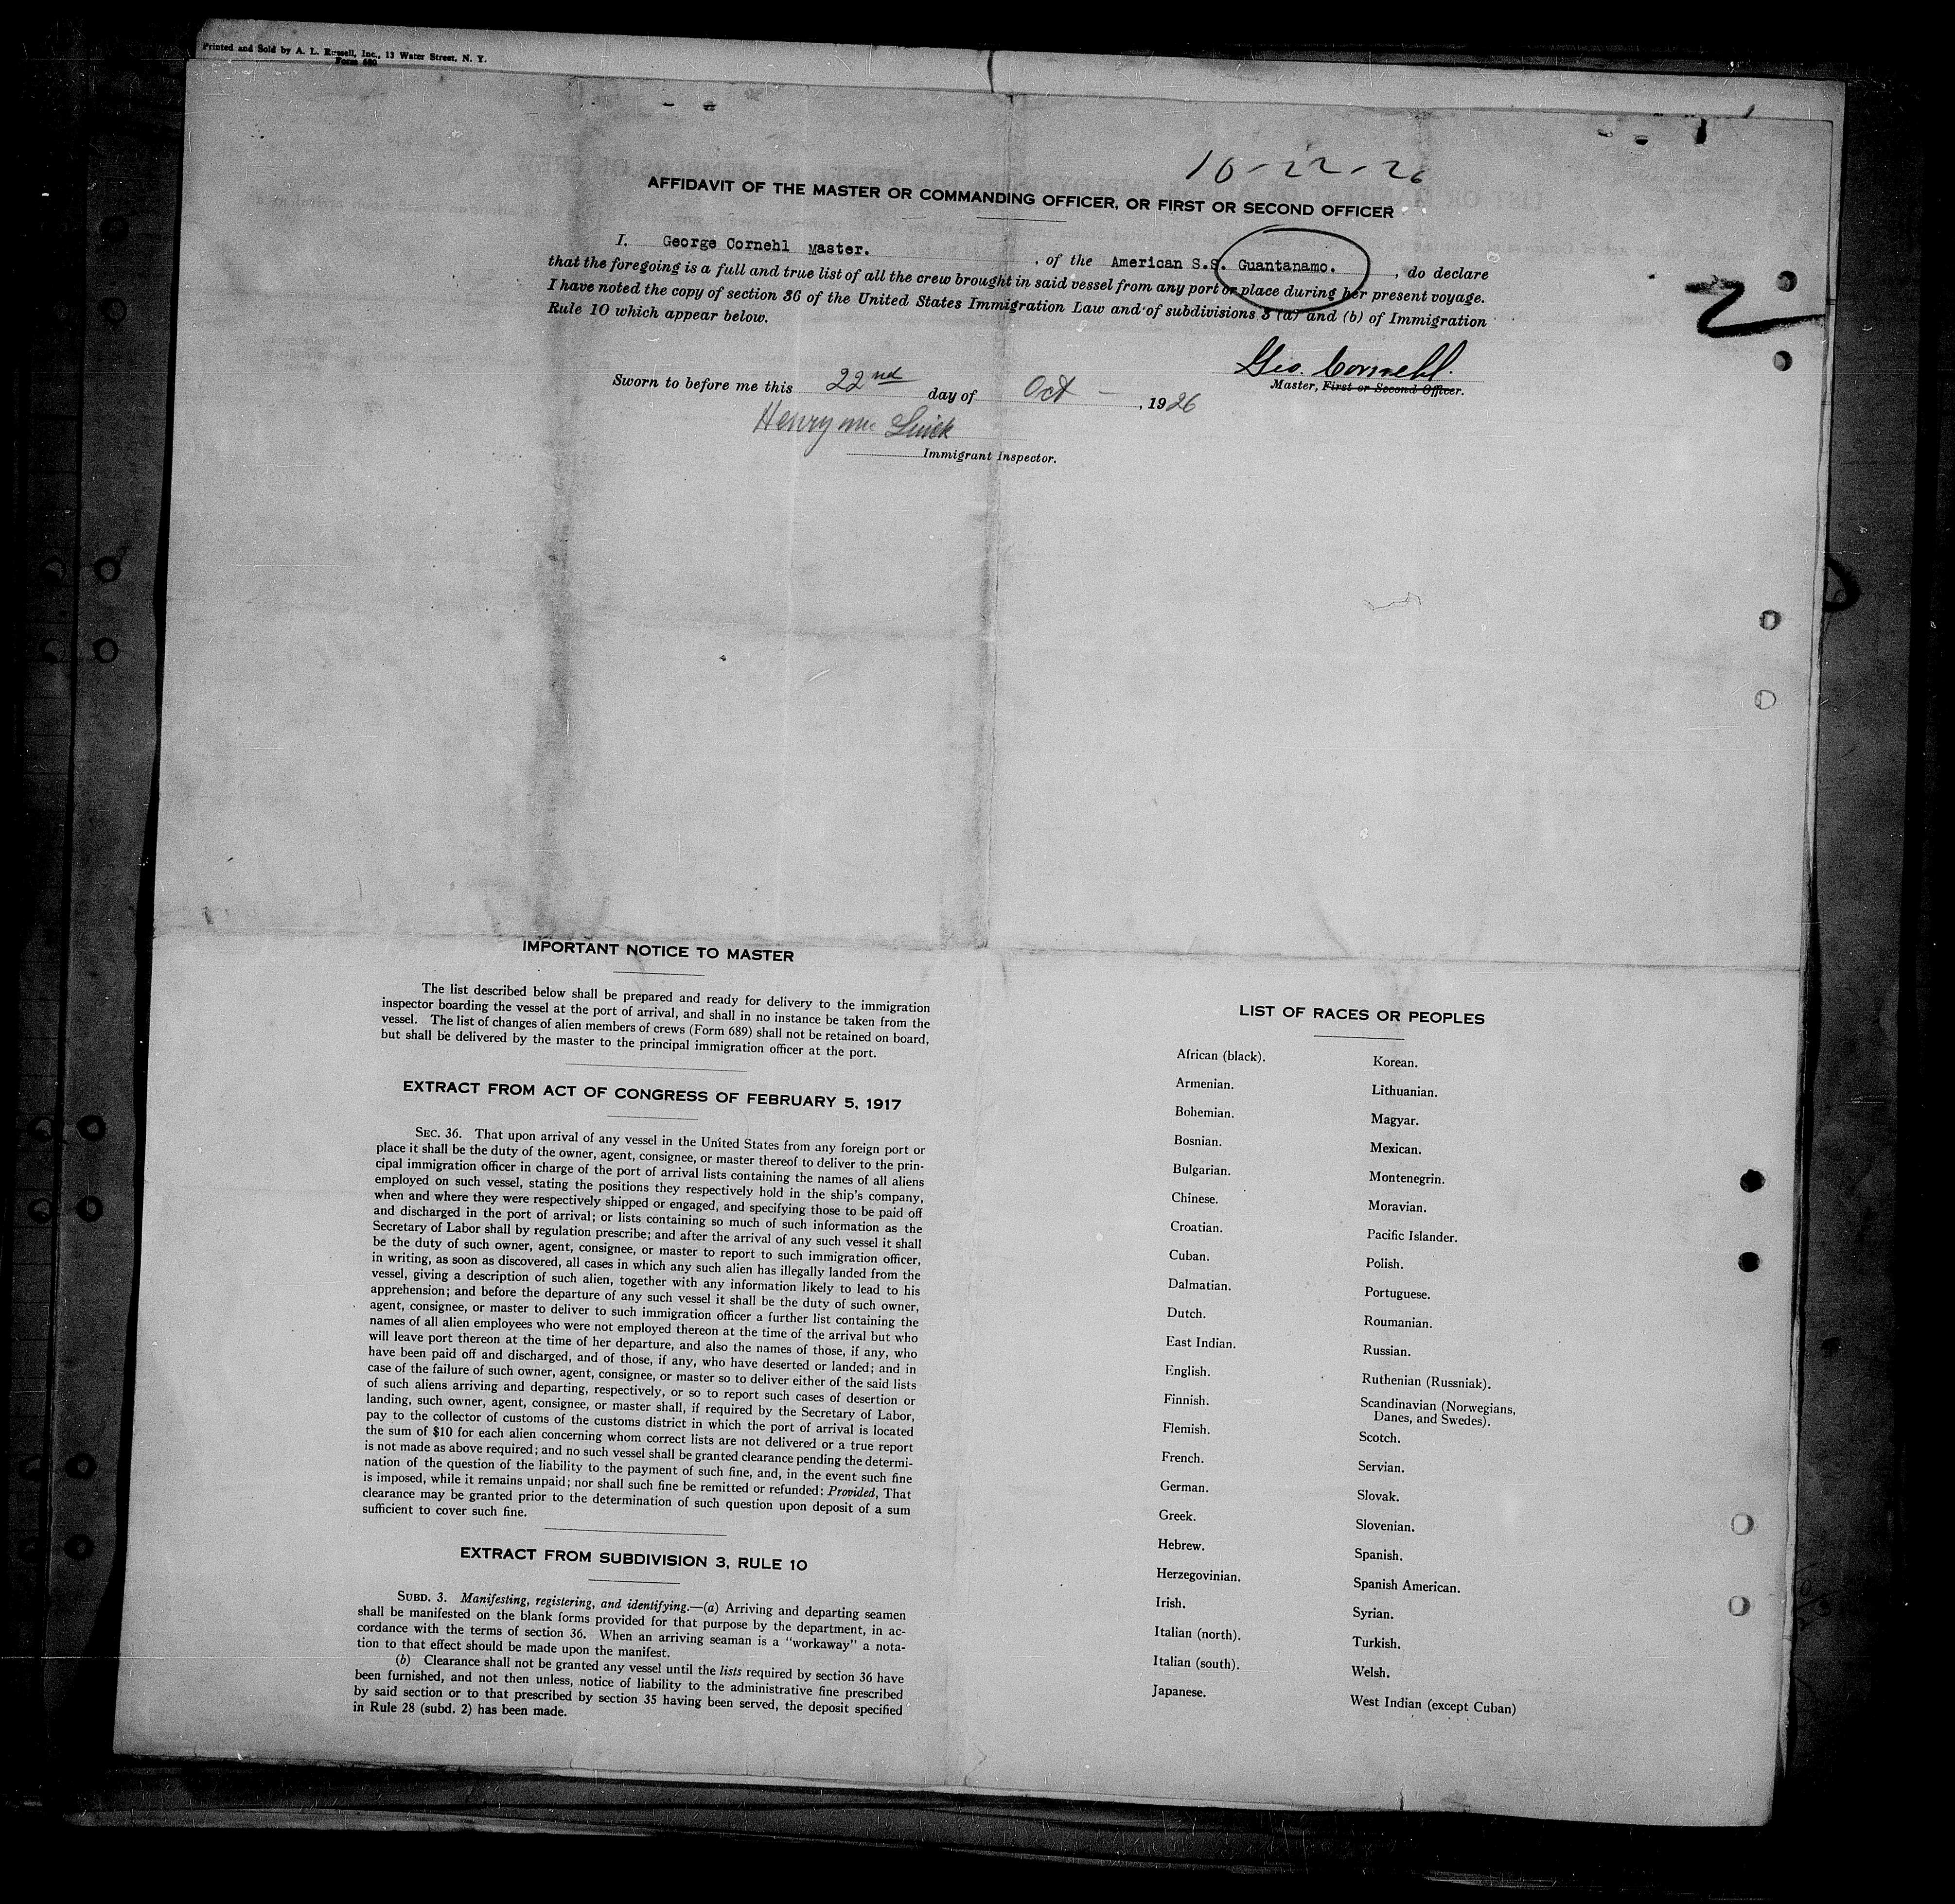 Printed and Sold by A. L. Russell, Inc., 13 Water Street, N. Y.
Form 680
10-22-26
AFFIDAVIT OF THE MASTER OR COMMANDING OFFICER, OR FIRST OR SECOND OFFICER
I, George Cornehl Master. , of the American S.S. Guantanamo. , do declare
that the foregoing is a full and true list of all the crew brought in said vessel from any port or place during her present voyage.
I have noted the copy of section 36 of the United States Immigration Law and of subdivisions 3 (a) and (b) of Immigration
Rule 10 which appear below.
2
Geo. Cornehl.
Master, First or Second Officer.
Sworn to before me this 22nd day of Oct - , 1926
Henry
Immigrant Inspector.
IMPORTANT NOTICE TO MASTER
The list described below shall be prepared and ready for delivery to the immigration
inspector boarding the vessel at the port of arrival, and shall in no instance be taken from the
vessel. The list of changes of alien members of crews (Form 689) shall not be retained on board,
but shall be delivered by the master to the principal immigration officer at the port.
EXTRACT FROM ACT OF CONGRESS OF FEBRUARY 5, 1917
SEC. 36. That upon arrival of any vessel in the United States from any foreign port or
place it shall be the duty of the owner, agent, consignee, or master thereof to deliver to the prin-
cipal immigration officer in charge of the port of arrival lists containing the names of all aliens
employed on such vessel, stating the positions they respectively hold in the ship's company,
when and where they were respectively shipped or engaged, and specifying those to be paid off
and discharged in the port of arrival; or lists containing so much of such information as the
Secretary of Labor shall by regulation prescribe; and after the arrival of any such vessel it shall
be the duty of such owner, agent, consignee, or master to report to such immigration officer,
in writing, as soon as discovered, all cases in which any such alien has illegally landed from the
vessel, giving a description of such alien, together with any information likely to lead to his
apprehension; and before the departure of any such vessel it shall be the duty of such owner,
agent, consignee, or master to deliver to such immigration officer a further list containing the
names of all alien employees who were not employed thereon at the time of the arrival but who
will leave port thereon at the time of her departure, and also the names of those, if any, who
have been paid off and discharged, and of those, if any, who have deserted or landed; and in
case of the failure of such owner, agent, consignee, or master so to deliver either of the said lists
of such aliens arriving and departing, respectively, or so to report such cases of desertion or
landing, such owner, agent, consignee, or master shall, if required by the Secretary of Labor,
pay to the collector of customs of the customs district in which the port of arrival is located
the sum of $10 for each alien concerning whom correct lists are not delivered or a true report
is not made as above required; and no such vessel shall be granted clearance pending the determi-
nation of the question of the liability to the payment of such fine, and, in the event such fine
is imposed, while it remains unpaid; nor shall such fine be remitted or refunded: Provided, That
clearance may be granted prior to the determination of such question upon deposit of a sum
sufficient to cover such fine.
EXTRACT FROM SUBDIVISION 3, RULE 10
SUBD. 3. Manifesting, registering, and identifying.—(a) Arriving and departing seamen
shall be manifested on the blank forms provided for that purpose by the department, in ac-
cordance with the terms of section 36. When an arriving seaman is a "workaway" a nota-
tion to that effect should be made upon the manifest.
(b) Clearance shall not be granted any vessel until the lists required by section 36 have
been furnished, and not then unless, notice of liability to the administrative fine prescribed
by said section or to that prescribed by section 35 having been served, the deposit specified
in Rule 28 (subd. 2) has been made.
LIST OF RACES OR PEOPLES
African (black).
Armenian.
Bohemian.
Bosnian.
Bulgarian.
Chinese.
Croatian.
Cuban.
Dalmatian.
Dutch.
East Indian.
English.
Finnish.
Flemish.
French.
German.
Greek.
Hebrew.
Herzegovinian.
Irish.
Italian (north).
Italian (south).
Japanese.
Korean.
Lithuanian.
Magyar.
Mexican.
Montenegrin.
Moravian.
Pacific Islander.
Polish.
Portuguese.
Roumanian.
Russian.
Ruthenian (Russniak).
Scandinavian (Norwegians,
Danes, and Swedes).
Scotch.
Servian.
Slovak.
Slovenian.
Spanish.
Spanish American.
Syrian.
Turkish.
Welsh.
West Indian (except Cuban)